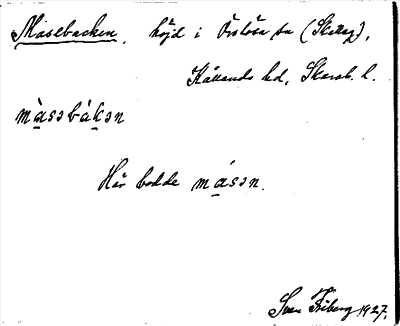 Masebacken, höjd i Örslösa sn (Skattag),
Kållands hd, Skarab. l.
màsəbákən
Här bodde másən.
Sven Friberg 1927.